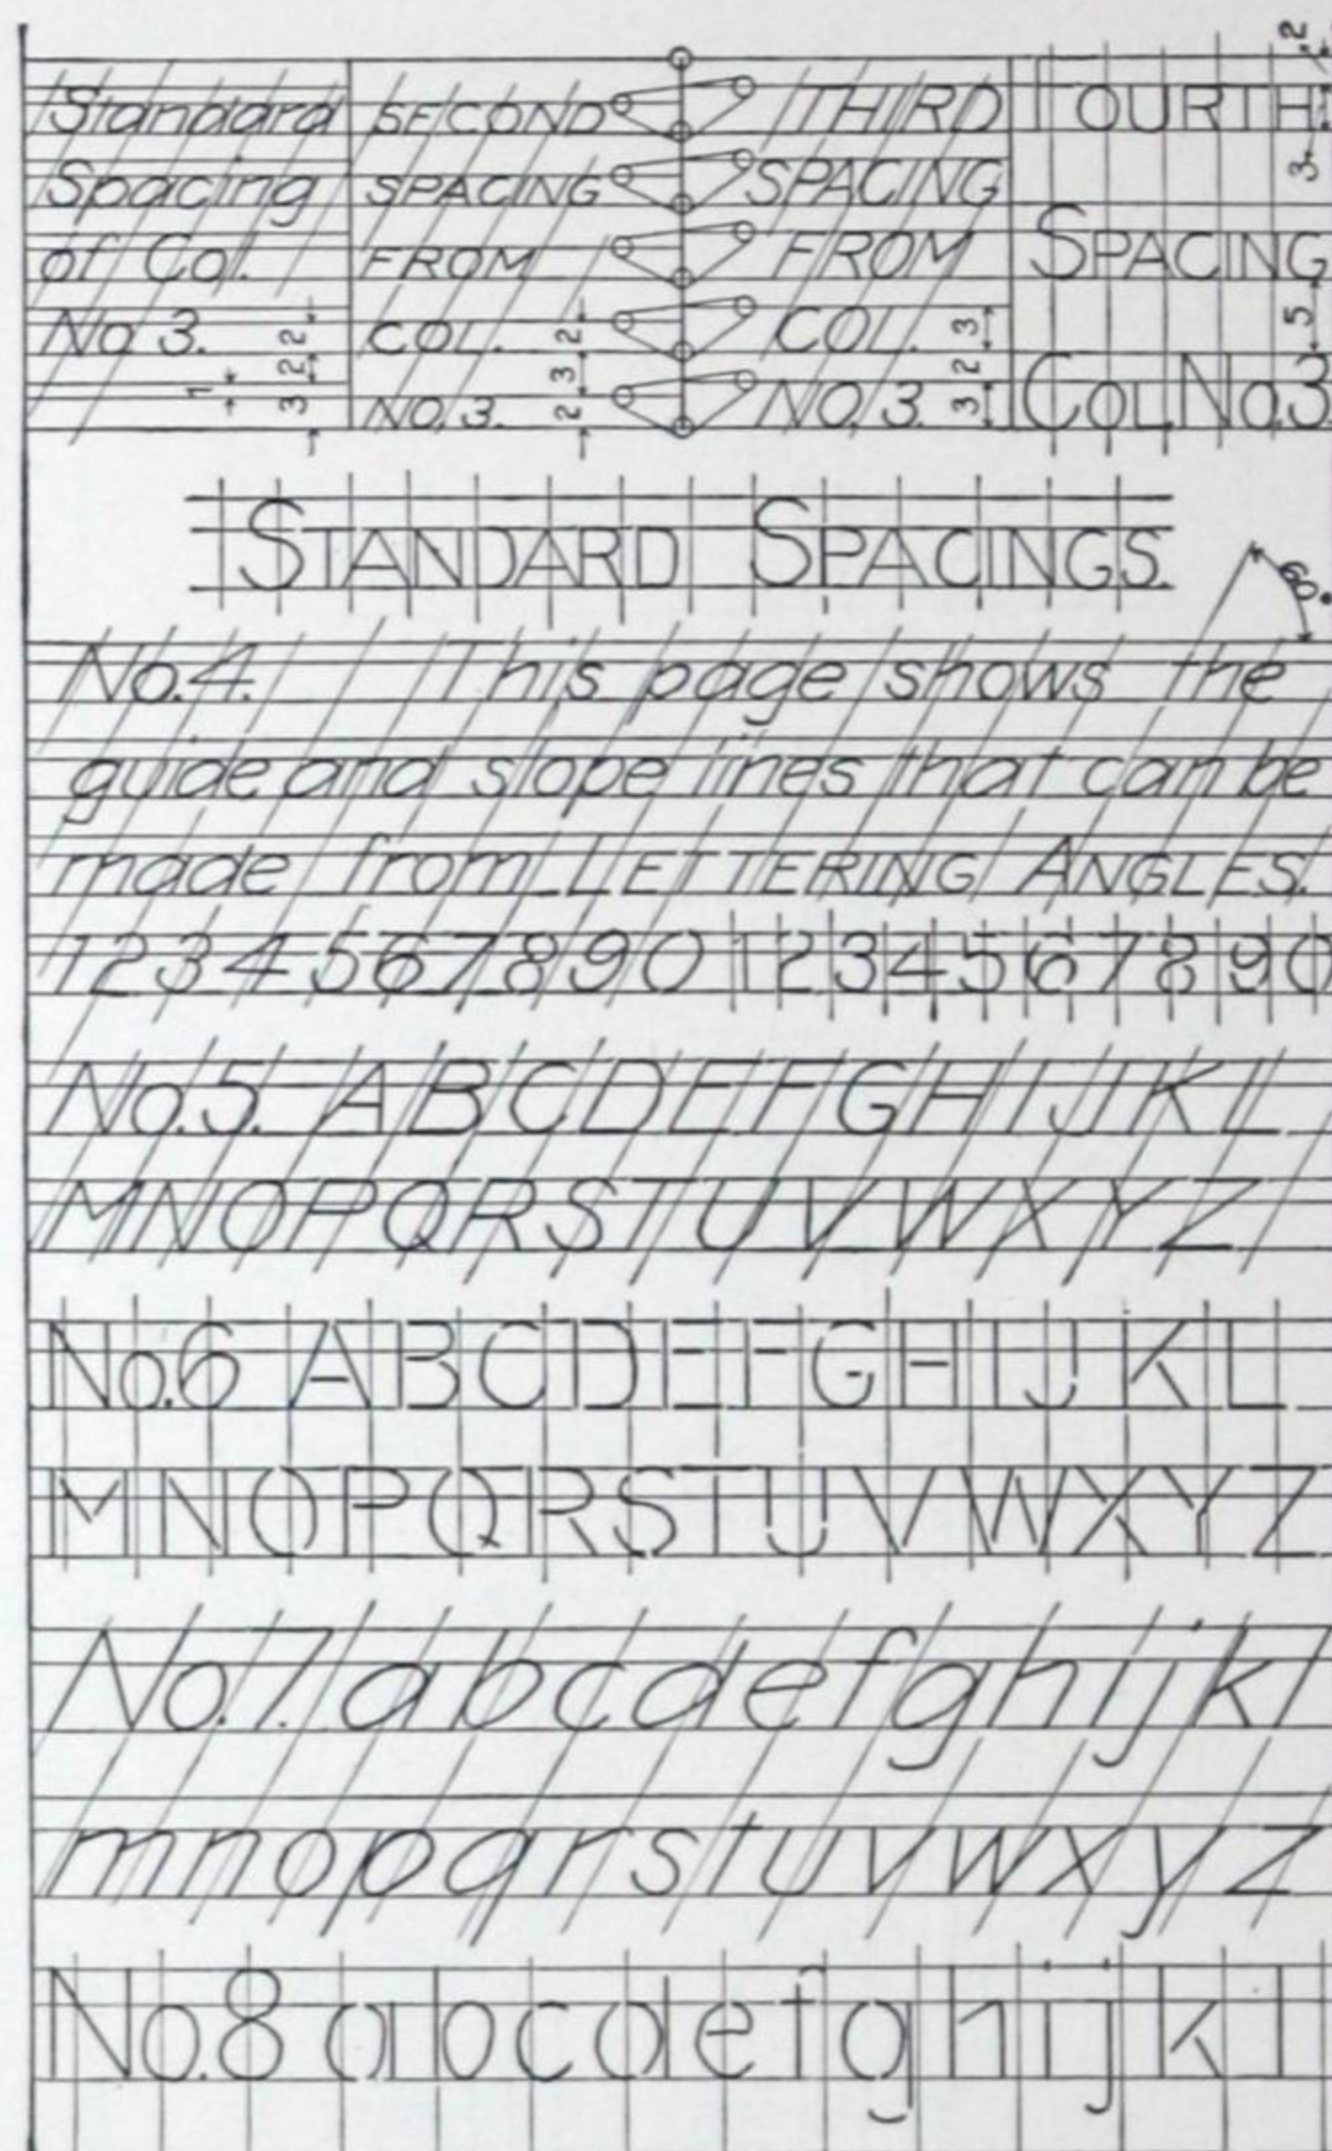 Standard
Spacing
of Col.
No 3.
1
3 2 2
SECOND
SPACING
FROM
COL.
NO. 3.
2 3 2
THIRD
SPACING
FROM
COL.
NO. 3.
3 2 3
FOURTH
SPACING
COL No.3
2
3
5
STANDARD SPACINGS.
60°
No.4. This page shows the
guide and slope lines that can be
made from LETTERING ANGLES.
1234567890 1234567890
No.5. ABCDEFGHIJKL
MNOPQRSTUVWXYZ
No.6 ABCDEFGHIJKL
MNOPQRSTUVWXYZ
No.7. abcdefghijkl
mnopqrstuvwxyz
No.8 abcdefghijkl